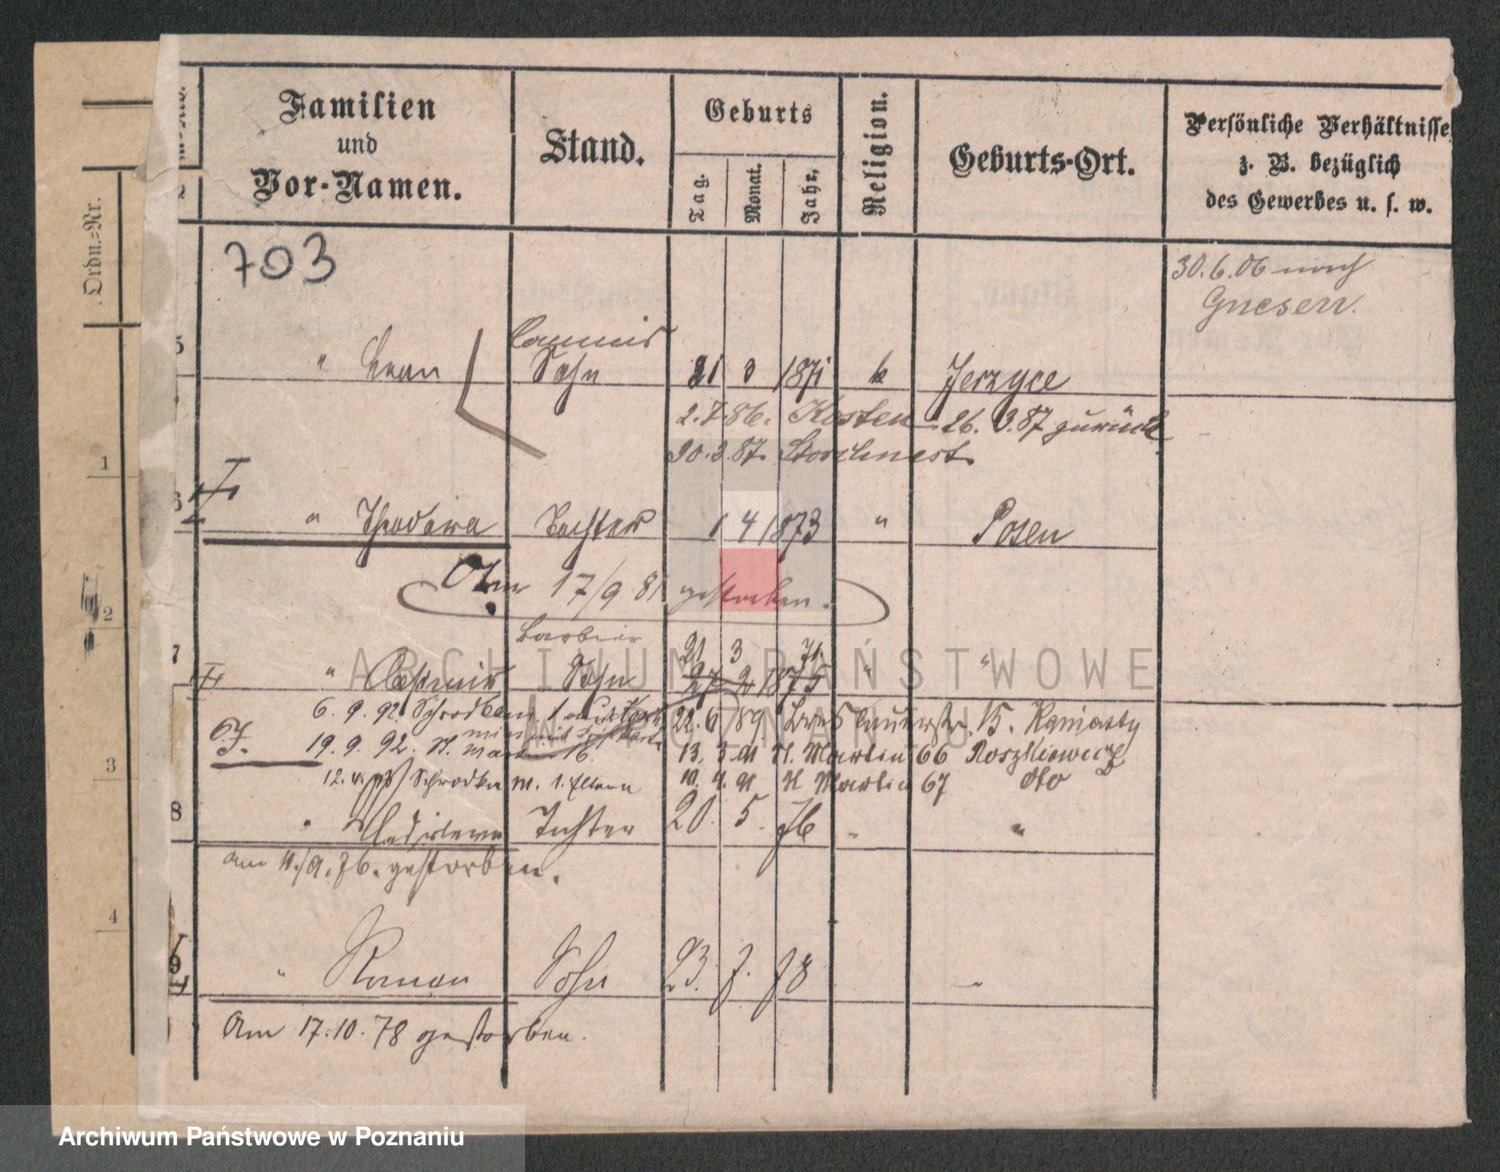 Familien
und
Vor-Namen.
Stand.
Geburts
Tag.
Monat.
Jahr.
Religion.
Geburts-Ort.
Persönliche Verhältnisse
z. B. bezüglich
des Gewerbes u. s. w.
Ordn.-Nr.
703
30.6.06 nach
Gnesen.
5 " Sohn 21 3 1871 k Jerzyce
2.7.86. Kosten 26.3.87 zurück
30.3.87. Storchnest
6 " Theodora Tochter 1 4 1873 " Posen
Am 17/9 81 gestorben.
Barbier
21 3 71
7 " Casimir Sohn 27 2 1875 " "
6. 9. 92 Schrodka
22.6/89 Breslauerstr. 15.
19. 9. 92. St. Martin 16.
13. 3. 91 St. Martin 66 Roszkiewicz
12. Schrodka m. 1. Eltern
11. 4. 91 St Martin 67 dto
8 " Tochter 20. 5. 76 " "
am 11./9. 76. gestorben.
9 " Roman Sohn 23. 7. 78 "
Am 17.10.78 gestorben.
1
2
3
4
ARCHIWUM PAŃSTWOWE
W POZNANIU
Archiwum Państwowe w Poznaniu